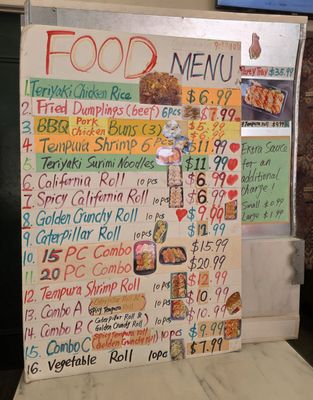 FOOD MENU
1. Teriyaki Chicken Rice $6.99
2. Fried Dumplings (beef) 6pcs $7.99
3. BBQ Pork Chicken Buns (3) $5.99
4. Tempura Shrimp 6 pcs $11.99
5. Teriyaki Surimi Noodles $11.99
6. California Roll 10 pcs $6.99
7. Spicy California Roll 10 pcs $6.99
8. Golden Crunchy Roll 10 pcs $9.99
9. Caterpillar Roll 10 pcs $12.99
10. 15 PC Combo $15.99
11. 20 PC Combo $20.99
12. Tempura Shrimp Roll $12.99
13. Combo A Caterpillar Roll & Spicy Tempura Roll 10pcs $10.99
14. Combo B Caterpillar Roll & Golden Crunchy Roll 10pcs $10.99
15. Combo C Spicy Tempura Roll & Golden Crunchy Roll 10 pcs $9.99
16. Vegetable Roll 10pc $7.99
Party Tray $35.99
Extra Sauce
for an
additional
charge!
Small $0.99
Large $1.99